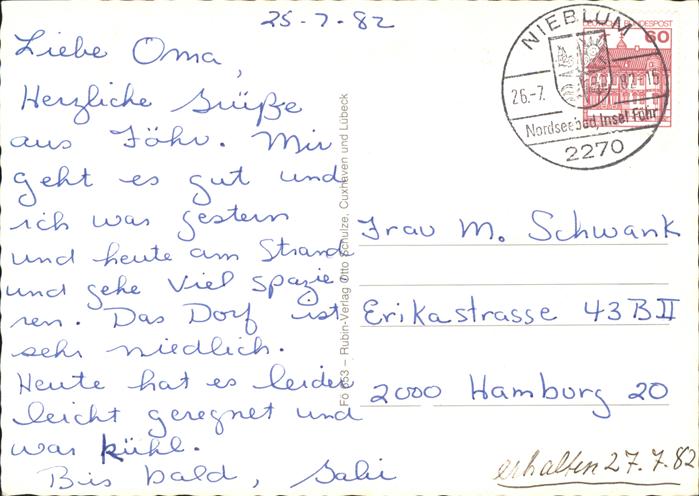 25-7.82
Liebe Oma,
Herzliche Grüße
aus Föhr. Mir
geht es gut und
ich war gestern
und heute am Strand
und gehe viel spazie
ren. Das Dorf ist
sehr niedlich.
Heute hat es leider
leicht geregnet und
war kühl.
Bis bald, Gabi
Fö 653 – Rubin-Verlag Otto Schulze, Cuxhaven und Lübeck
DEUTSCHE BUNDESPOST
60
NIEBLUM
26.-7. 82-15
Nordseebad, Insel Föhr
2270
Frau M. Schwank
Erikastrasse 43 B II
2000 Hamburg 20
erhalten 27.7.82